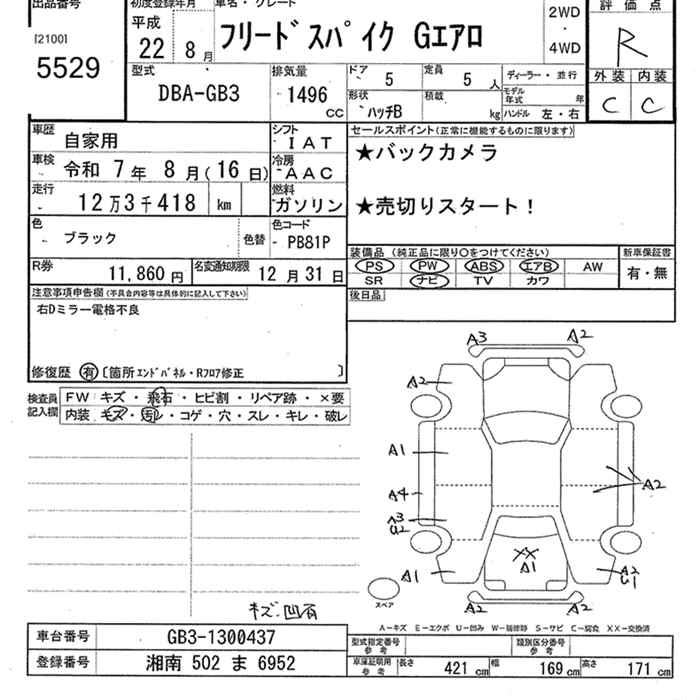 出品番号 初度登録年月 車名・グレード 評価点
[2100] 平成 22年 8月 フリードスパイク Gエアロ 2WD・4WD R
5529
型式 DBA-GB3 排気量 1496 CC ドア 5 定員 5人 ディーラー・並行 外装 内装
形状 ハッチB 積載 kg モデル年式 年 ハンドル 左・右 C C
車歴 自家用 シフト IAT セールスポイント(正常に機能するものに限ります)
車検 令和 7年 8月(16日) 冷房 AAC ★バックカメラ
走行 12万3千418 km 燃料 ガソリン ★売切りスタート!
色 ブラック 色替 色コード PB81P
装備品 (純正品に限り○をつけてください) 新車保証書
R券 11,860円 名変通知期限 12月31日 PS PW ABS エアB AW 有・無
SR ナビ TV カワ
注意事項申告欄(不具合内容等は具体的に記入して下さい) 後日品
右Dミラー電格不良
修復歴 有 〔箇所 エンドパネル・Rフロア修正 〕
検査員記入欄 FW キズ・飛石・ヒビ割・リペア跡・×要
内装 キズ・汚レ・コゲ・穴・スレ・キレ・破レ
A3 A2
A2
A1
A4 A2
A3
U2
XX
A1
A1 A2
U1
スペア A2 A2
キズ凹有
A−キズ E−エクボ U−凹み W−補修跡 S−サビ C−腐食 XX−交換済
車台番号 GB3-1300437 型式指定番号 参考 類別区分番号 参考
登録番号 湘南 502 ま 6952 車庫証明用 参考 長さ 421 cm 幅 169 cm 高さ 171 cm